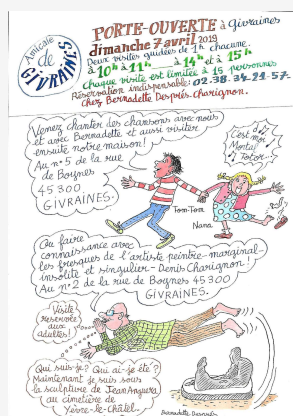 Amicale
de
GIVRAINES
PORTE-OUVERTE à Givraines
dimanche 7 avril 2019
Deux visites guidées de 1h chacune.
à 10h à 11h à 14h et à 15h
Chaque visite est limitée à 15 personnes
Réservation indispensable: 02.38.34.21-57.
Chez Bernadette Després.Charignon.
Venez chanter des chansons avec nous
et avec Bernadette et aussi visiter
ensuite notre maison!
Au n°5 de la rue
de Boynes
45300
GIVRAINES.
C'est moi
Totor
Tom-Tom
Nana
Ou faire
connaissance avec
les fresques de l'artiste peintre-marginal-
insolite et singulier-Denis Charignon!
Au n°2 de la rue de Boynes 45300
GIVRAINES.
Visite
réservée
aux
adultes!
Qui suis-je? Qui ai-je été?
Maintenant je suis sous
la sculpture de Jean Anguera
au cimetière de
Yèvre-le-Châtel.
Bernadette Després